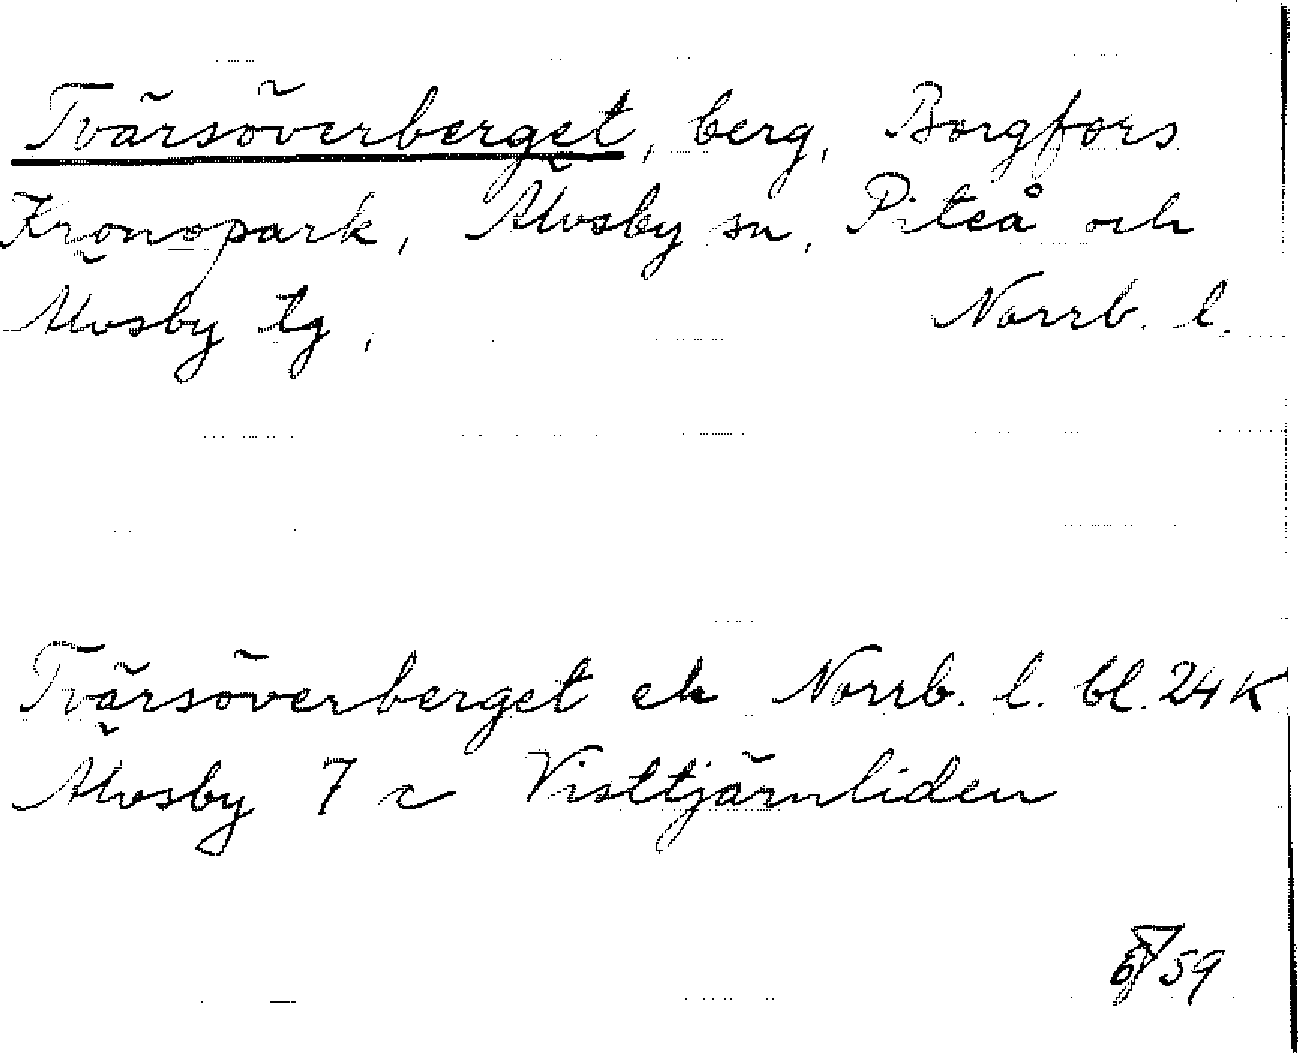 Tvärsöverberget, berg, Borgfors
Kronopark, Älvsby sn, Piteå och
Älvsby tg, Norrb. l.
Tvärsöverberget ek Norrb. l. bl. 24K
Älvsby 7 c Visttjärnliden
59